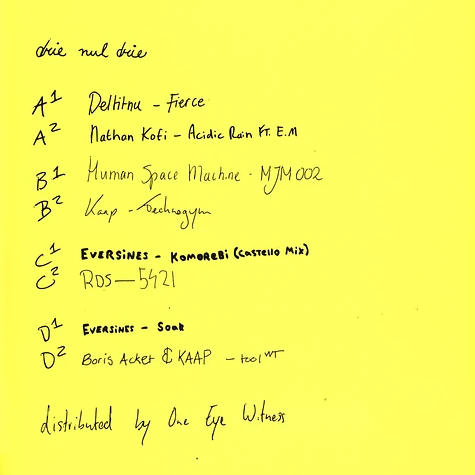 drie nul drie
A1 Deltitnu - Fierce
A2 Nathan Kofi - Acidic Rain Ft. E.M
B1 Human Space Machine - MJM002
B2 Kaap - Technogym
C1 EVERSINES - KOMOREBI (CASTELLO MIX)
C2 RDS - 5421
D1 EVERSINES - Soak
D2 Boris Acket & KAAP - tool WT
distributed by One Eye Witness